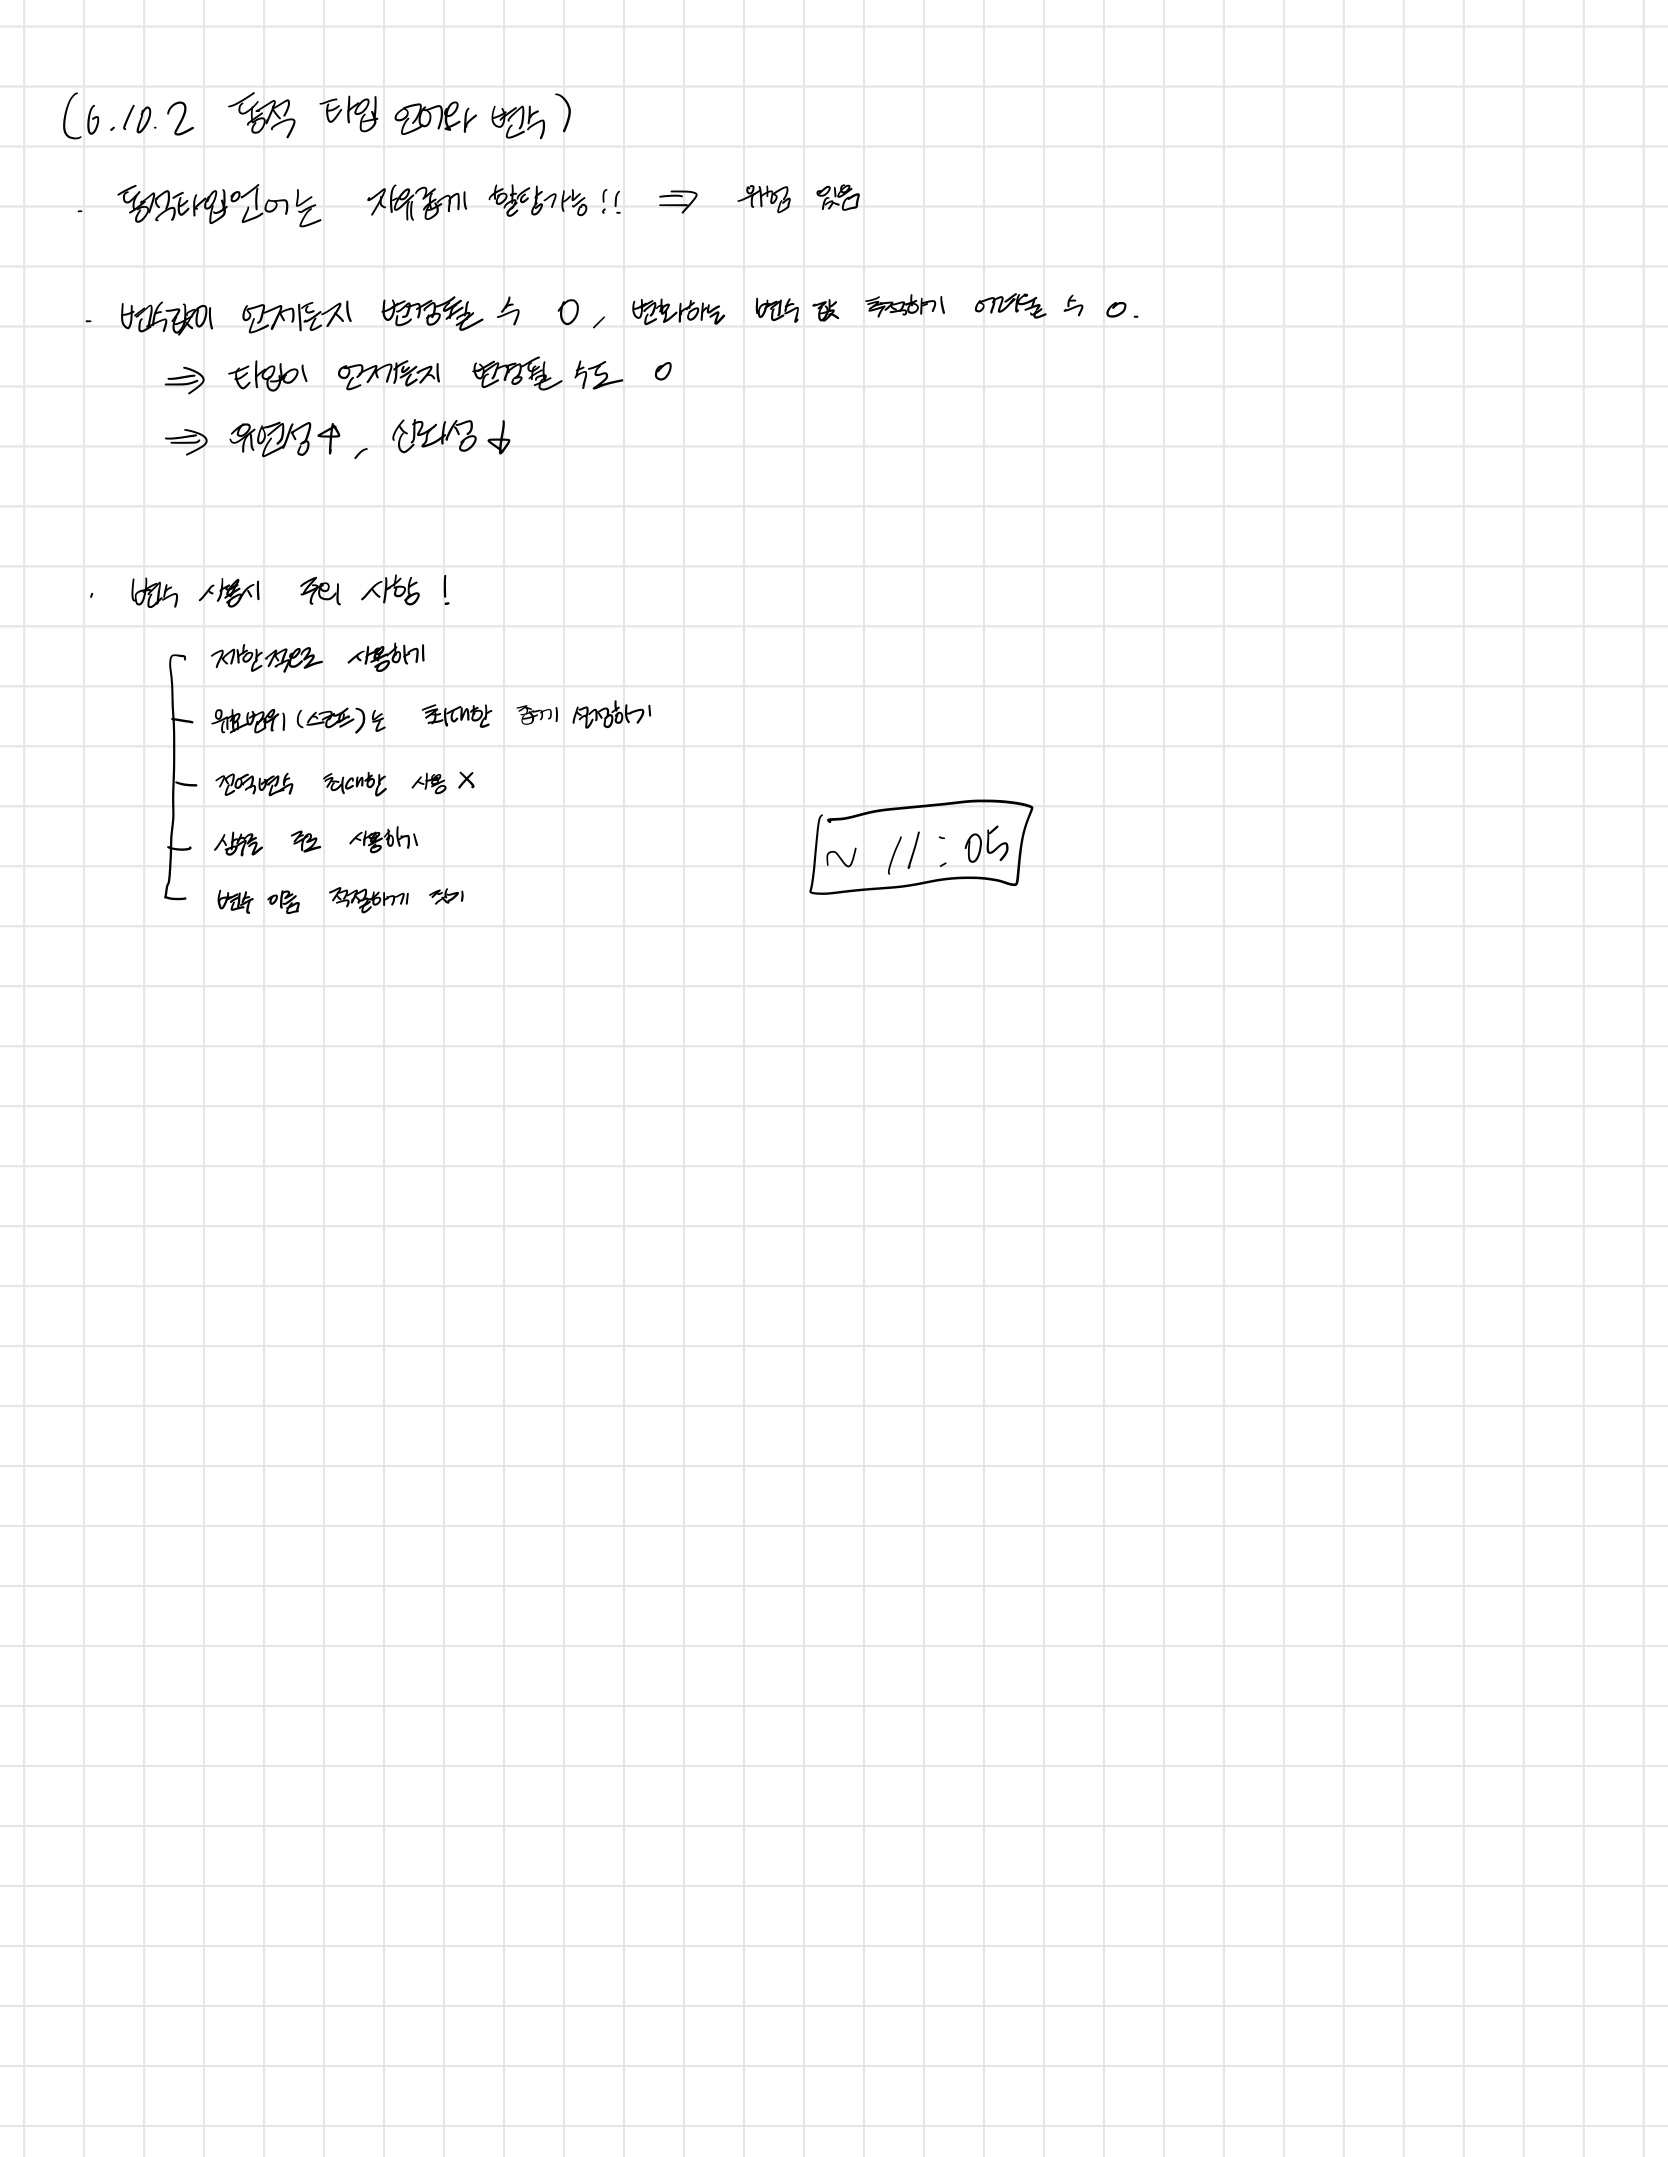 (6.10.2 동적 타입 언어와 변수)
· 동적타입언어는 자유롭게 할당가능!! ⇒ 위험 있음
· 변수값이 언제든지 변경될 수 O, 변화하는 변수 값 추적하기 어려울 수 O.
⇒ 타입이 언제든지 변경될 수도 O
⇒ 유연성↑, 신뢰성↓
· 변수 사용시 주의 사항!
제한적으로 사용하기
유효범위(스코프)는 최대한 좁게 설정하기
전역변수 최대한 사용 X
상수를 주로 사용하기
변수 이름 적절하게 짓기
~ 11:05